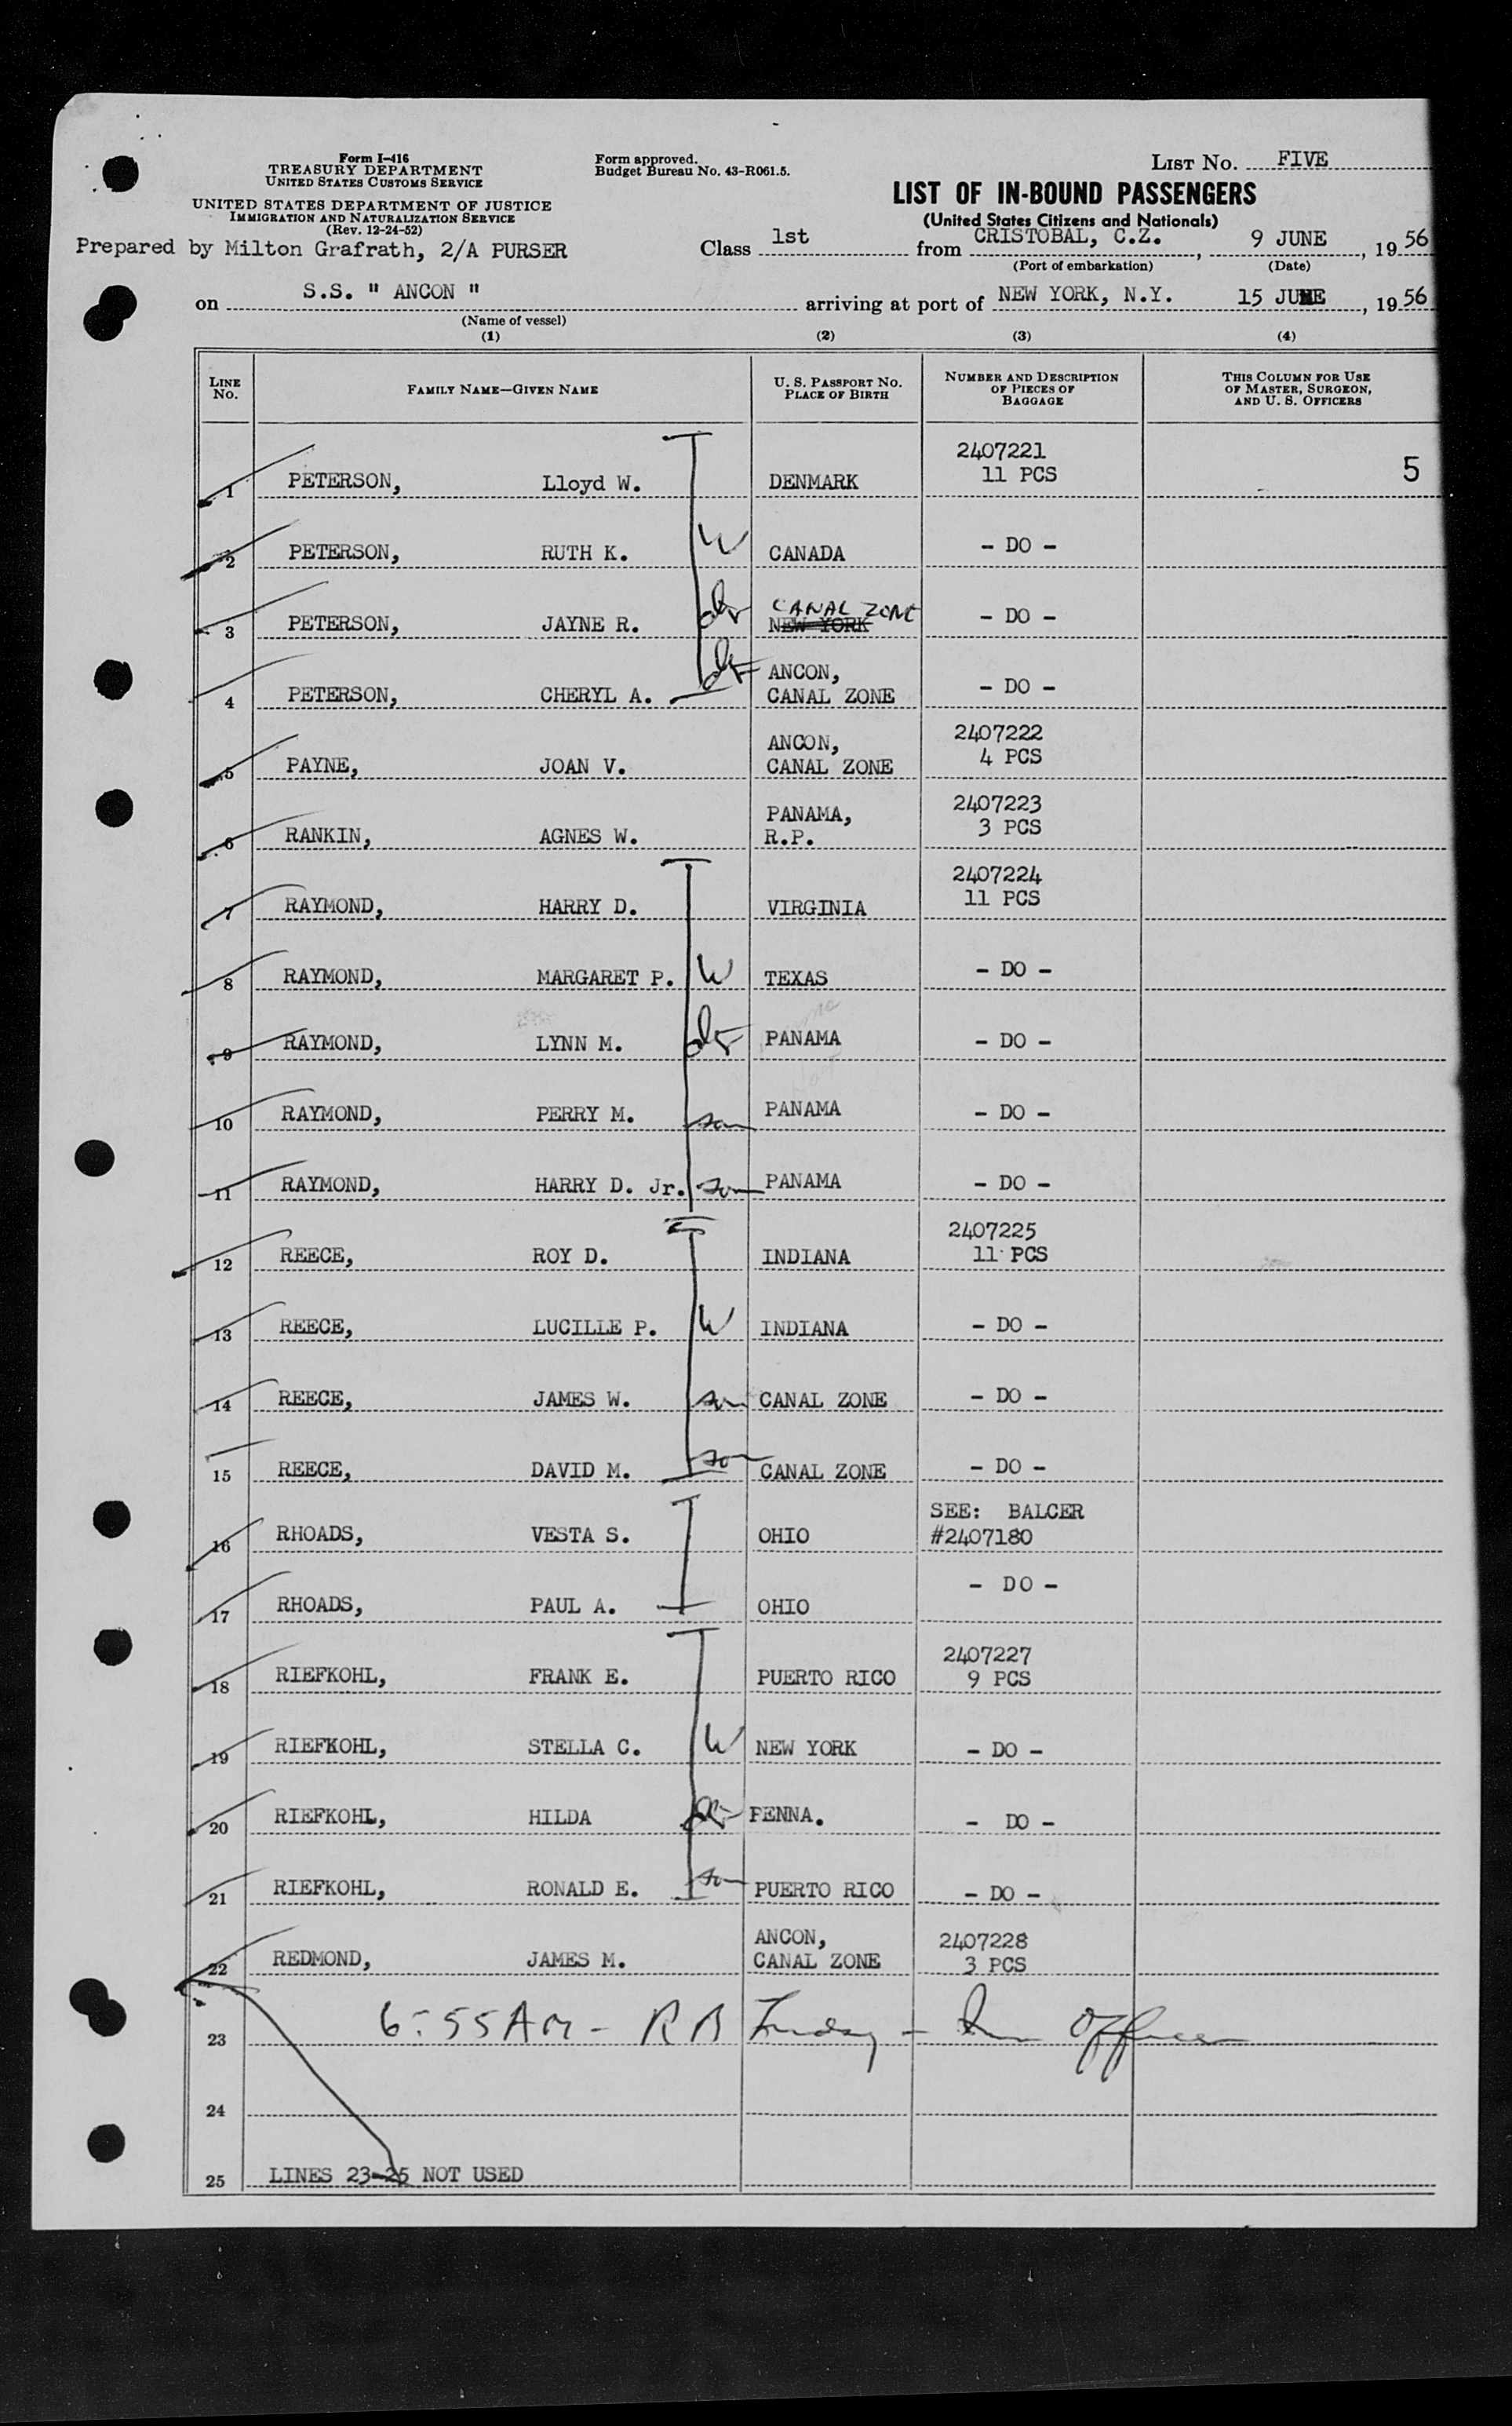 Form I-416
TREASURY DEPARTMENT
UNITED STATES CUSTOMS SERVICE
UNITED STATES DEPARTMENT OF JUSTICE
IMMIGRATION AND NATURALIZATION SERVICE
(Rev. 12-24-52)
Prepared by Milton Grafrath, 2/A PURSER
Form approved.
Budget Bureau No. 43-R061.5.
LIST NO. FIVE
LIST OF IN-BOUND PASSENGERS
(United States Citizens and Nationals)
Class 1st from CRISTOBAL, C.Z., 9 JUNE, 19 56
(Port of embarkation) (Date)
on S.S. " ANCON " arriving at port of NEW YORK, N.Y. 15 JUNE, 19 56
(Name of vessel)
(1) (2) (3) (4)
LINE NO. FAMILY NAME—GIVEN NAME U. S. PASSPORT NO. PLACE OF BIRTH NUMBER AND DESCRIPTION OF PIECES OF BAGGAGE THIS COLUMN FOR USE OF MASTER, SURGEON, AND U. S. OFFICERS
1 PETERSON, Lloyd W. DENMARK 2407221 11 PCS 5
2 PETERSON, RUTH K. W CANADA - DO -
3 PETERSON, JAYNE R. dtr CANAL ZONE NEW YORK - DO -
4 PETERSON, CHERYL A. dtr ANCON, CANAL ZONE - DO -
5 PAYNE, JOAN V. ANCON, CANAL ZONE 2407222 4 PCS
6 RANKIN, AGNES W. PANAMA, R.P. 2407223 3 PCS
7 RAYMOND, HARRY D. VIRGINIA 2407224 11 PCS
8 RAYMOND, MARGARET P. W TEXAS - DO -
9 RAYMOND, LYNN M. dtr PANAMA - DO -
10 RAYMOND, PERRY M. son PANAMA - DO -
11 RAYMOND, HARRY D. Jr. son PANAMA - DO -
12 REECE, ROY D. INDIANA 2407225 11 PCS
13 REECE, LUCILLE P. W INDIANA - DO -
14 REECE, JAMES W. son CANAL ZONE - DO -
15 REECE, DAVID M. son CANAL ZONE - DO -
16 RHOADS, VESTA S. OHIO SEE: BALCER #2407180
17 RHOADS, PAUL A. OHIO - DO -
18 RIEFKOHL, FRANK E. PUERTO RICO 2407227 9 PCS
19 RIEFKOHL, STELLA C. W NEW YORK - DO -
20 RIEFKOHL, HILDA dtr PENNA. - DO -
21 RIEFKOHL, RONALD E. son PUERTO RICO - DO -
22 REDMOND, JAMES M. ANCON, CANAL ZONE 2407228 3 PCS
23 6:55AM - RB Friday - Officer
24
25 LINES 23-25 NOT USED